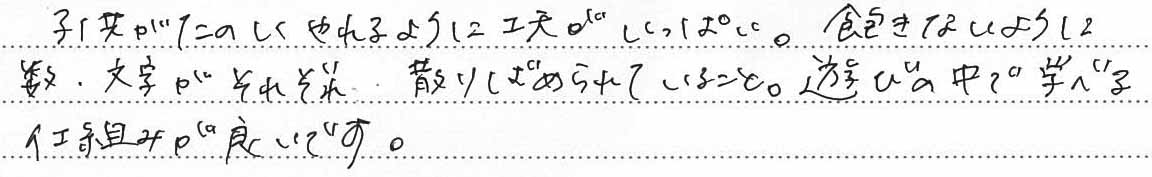 子供がたのしくやれるように工夫がいっぱい。飽きないように
数・文字がそれぞれ散りばめられていること。遊びの中で学べる
仕組みが良いです。